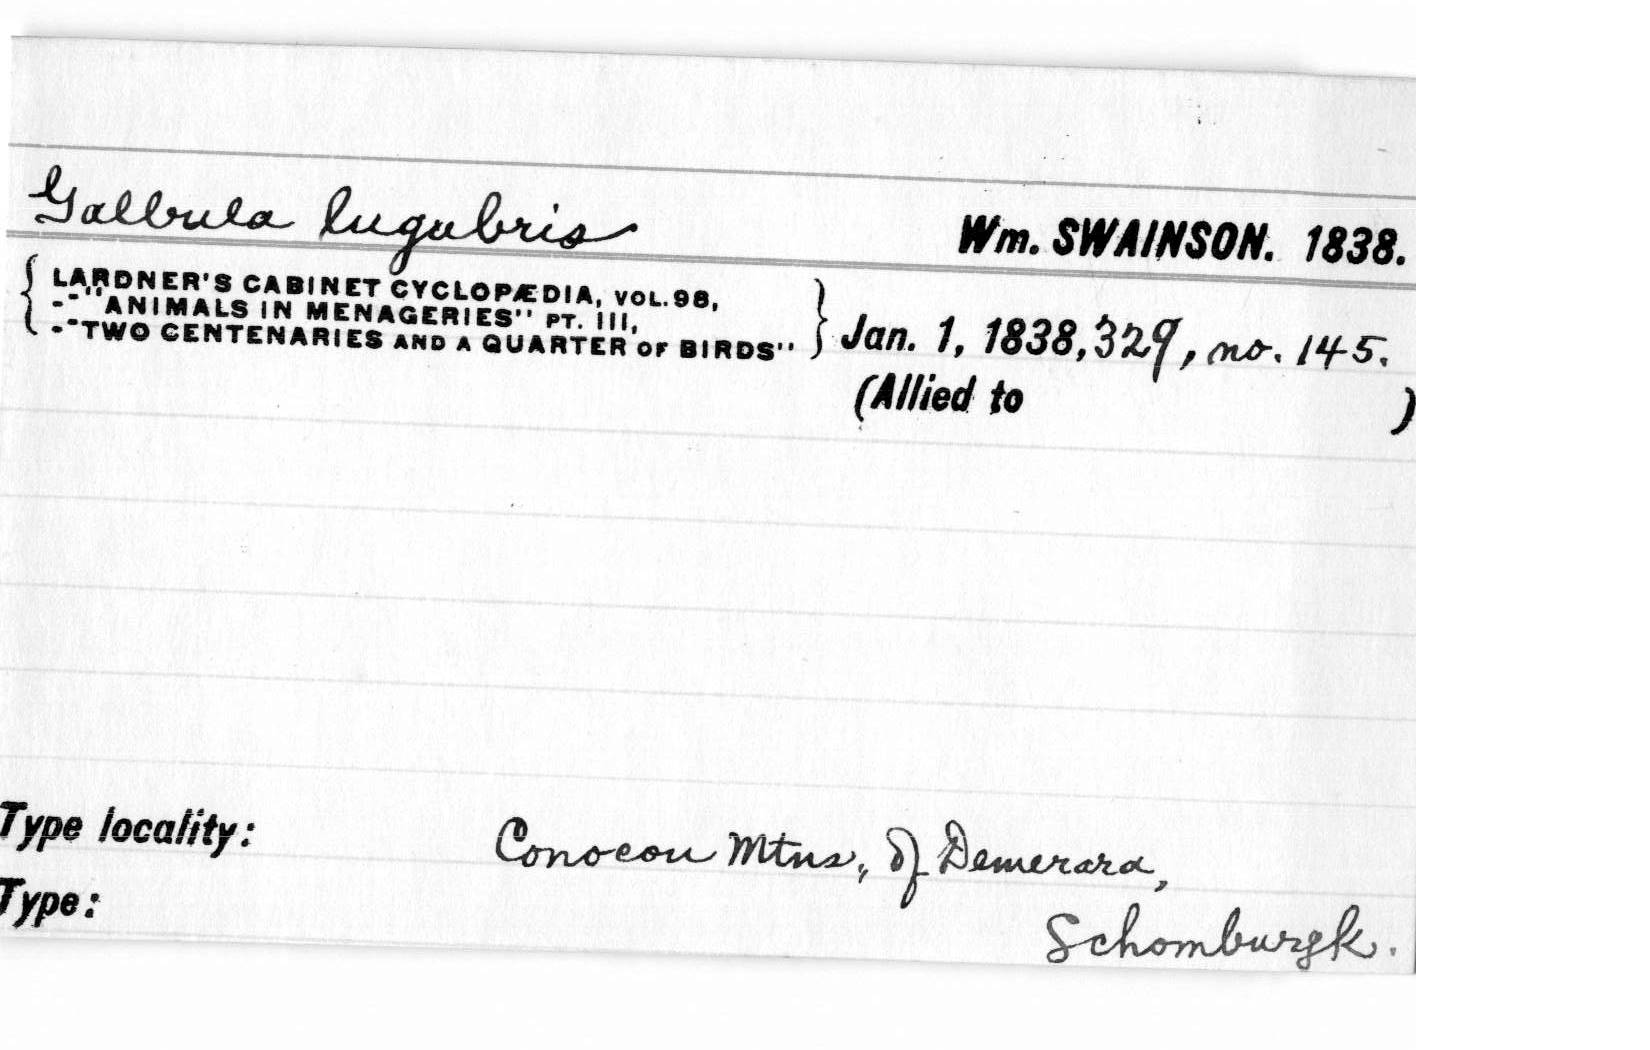 Galbula lugubris Wm. SWAINSON. 1838.
{ LARDNER'S CABINET CYCLOPÆDIA, VOL. 98,
-"ANIMALS IN MENAGERIES" PT. III,
-"TWO CENTENARIES AND A QUARTER OF BIRDS" } Jan. 1, 1838, 329, no. 145.
(Allied to )
Type locality: Conocou Mtns., of Demerara,
Type: Schomburgk.